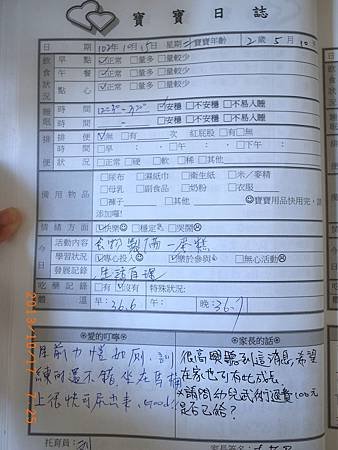 寶寶日誌
日期 102年10月15日 星期二 寶寶年齡 2歲5月10天
飲食狀況
早點 ☑正常 □量多 □量較少
午餐 ☑正常 □量多 □量較少
點心 ☑正常 □量多 □量較少
睡眠
時間 ☑安穩 □不安穩 □不易入睡
時間 - □安穩 □不安穩 □不易入睡
排便狀況
排便 ☑無 □有 次 紅屁股 □有 □無
時間 □早: , □午: , □下午:
狀況 □正常 □硬 □軟 □稀 □其他
備用物品
□尿布 □濕紙巾 □衛生紙 □米/麥精
□母乳 □副食品 □奶粉 □衣服
□褲子 □其他 ☺寶寶用品快用完,請添加喔!
情緒方面 ☑快樂☺ □穩定 □哭鬧
今日
活動內容 食物製作-蛋糕
學習狀況 ☑專心投入 ☑樂於參與 □無心活動
發展記錄 生活自理
吃藥記錄 □有 ☑沒有 特殊狀況:
體溫 早: 36.6 午: 晚: 36.7
※愛的叮嚀※
目前力懂如廁,訓
練的還不錯坐在馬桶
上很快可尿出來,Good!
※家長的話※
很高興聽到這消息,希望
在家也可有此成長。
*請問幼兒武術週費100元
是否已給?
托育員:
家長簽名:
2013/10/17 7:25